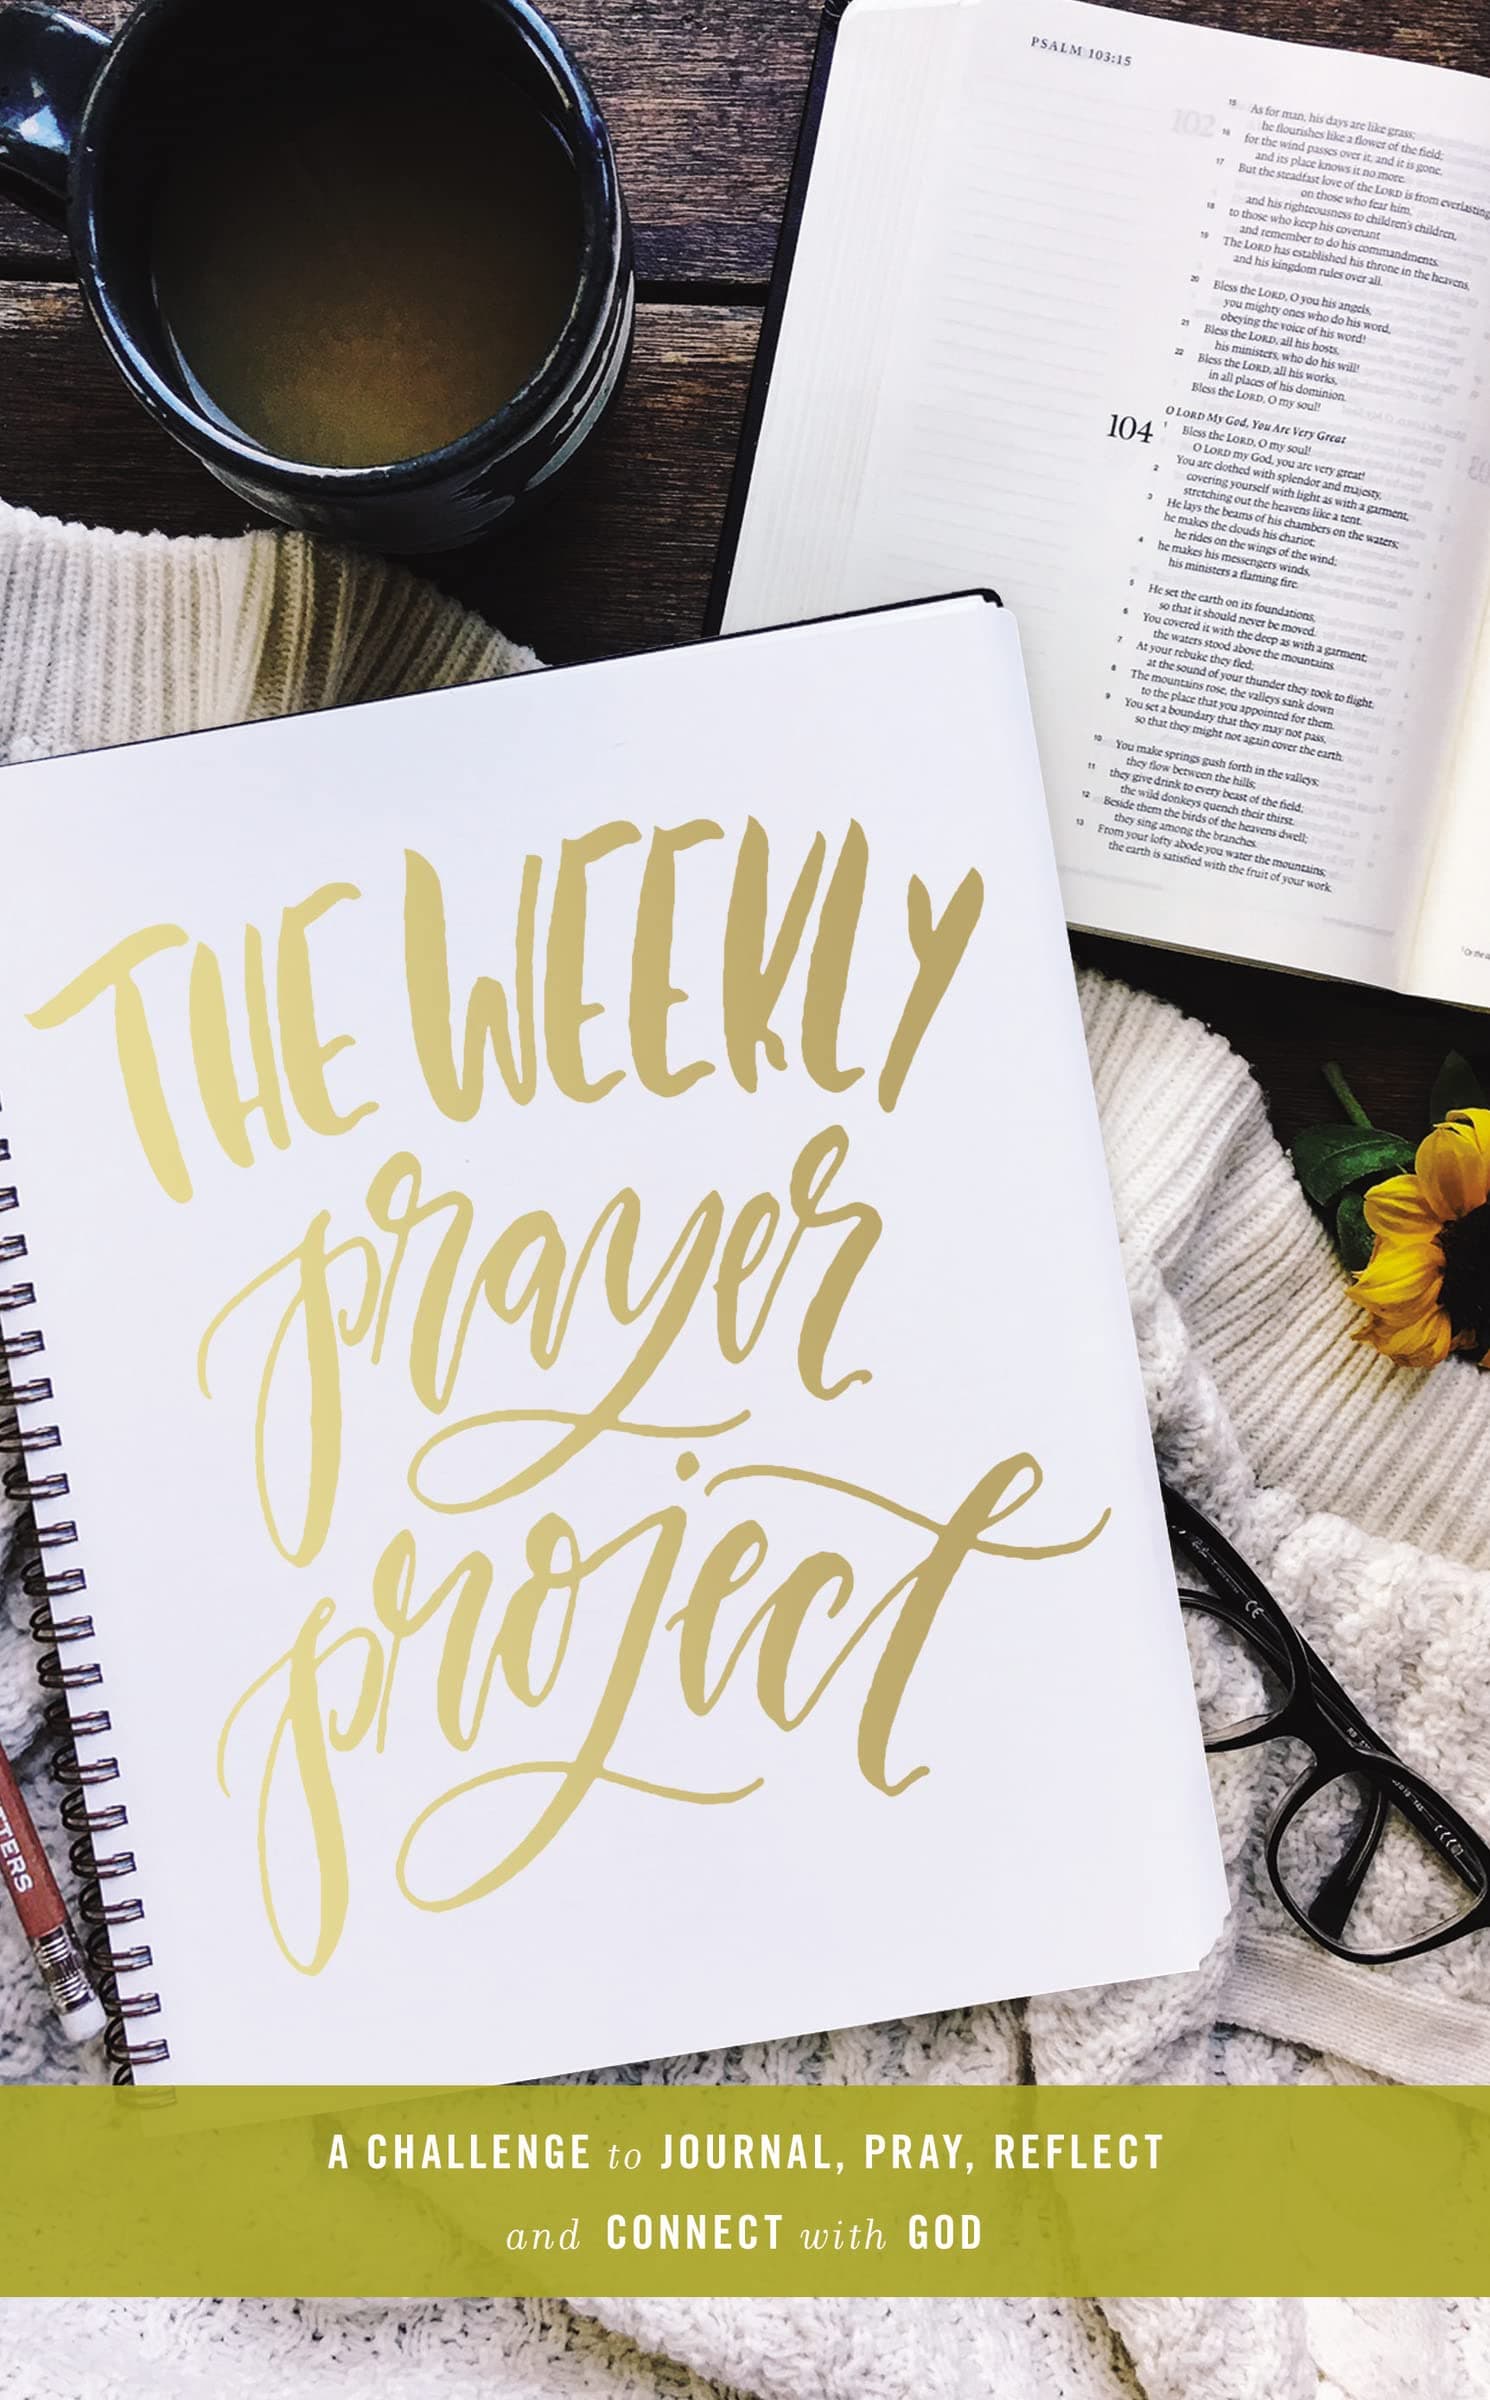 PSALM 103:15
102
15 As for man, his days are like grass;
he flourishes like a flower of the field;
16 for the wind passes over it, and it is gone,
and its place knows it no more.
17 But the steadfast love of the LORD is from everlasting
on those who fear him,
and his righteousness to children's children,
18 to those who keep his covenant
and remember to do his commandments.
19 The LORD has established his throne in the heavens,
and his kingdom rules over all.
20 Bless the LORD, O you his angels,
you mighty ones who do his word,
obeying the voice of his word!
21 Bless the LORD, all his hosts,
his ministers, who do his will!
22 Bless the LORD, all his works,
in all places of his dominion.
Bless the LORD, O my soul!
O LORD My God, You Are Very Great
104 1 Bless the LORD, O my soul!
O LORD my God, you are very great!
2 You are clothed with splendor and majesty,
covering yourself with light as with a garment,
stretching out the heavens like a tent.
3 He lays the beams of his chambers on the waters;
he makes the clouds his chariot;
he rides on the wings of the wind;
4 he makes his messengers winds,
his ministers a flaming fire.
5 He set the earth on its foundations,
so that it should never be moved.
6 You covered it with the deep as with a garment;
the waters stood above the mountains.
7 At your rebuke they fled;
at the sound of your thunder they took to flight.
8 The mountains rose, the valleys sank down
to the place that you appointed for them.
9 You set a boundary that they may not pass,
so that they might not again cover the earth.
10 You make springs gush forth in the valleys;
they flow between the hills;
11 they give drink to every beast of the field;
the wild donkeys quench their thirst.
12 Beside them the birds of the heavens dwell;
they sing among the branches.
13 From your lofty abode you water the mountains;
the earth is satisfied with the fruit of your work.
THE WEEKLY
prayer
project
TTERS
A CHALLENGE to JOURNAL, PRAY, REFLECT
and CONNECT with GOD